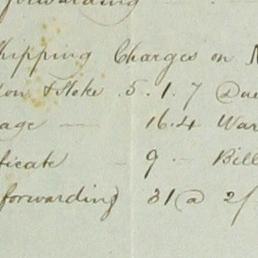 forwarding
Shipping Charges on
& Stoke . 5 . 1 . 7 Due
age — 16.4 War
ficate - 9 . - Bill
forwarding 31 @ 2/